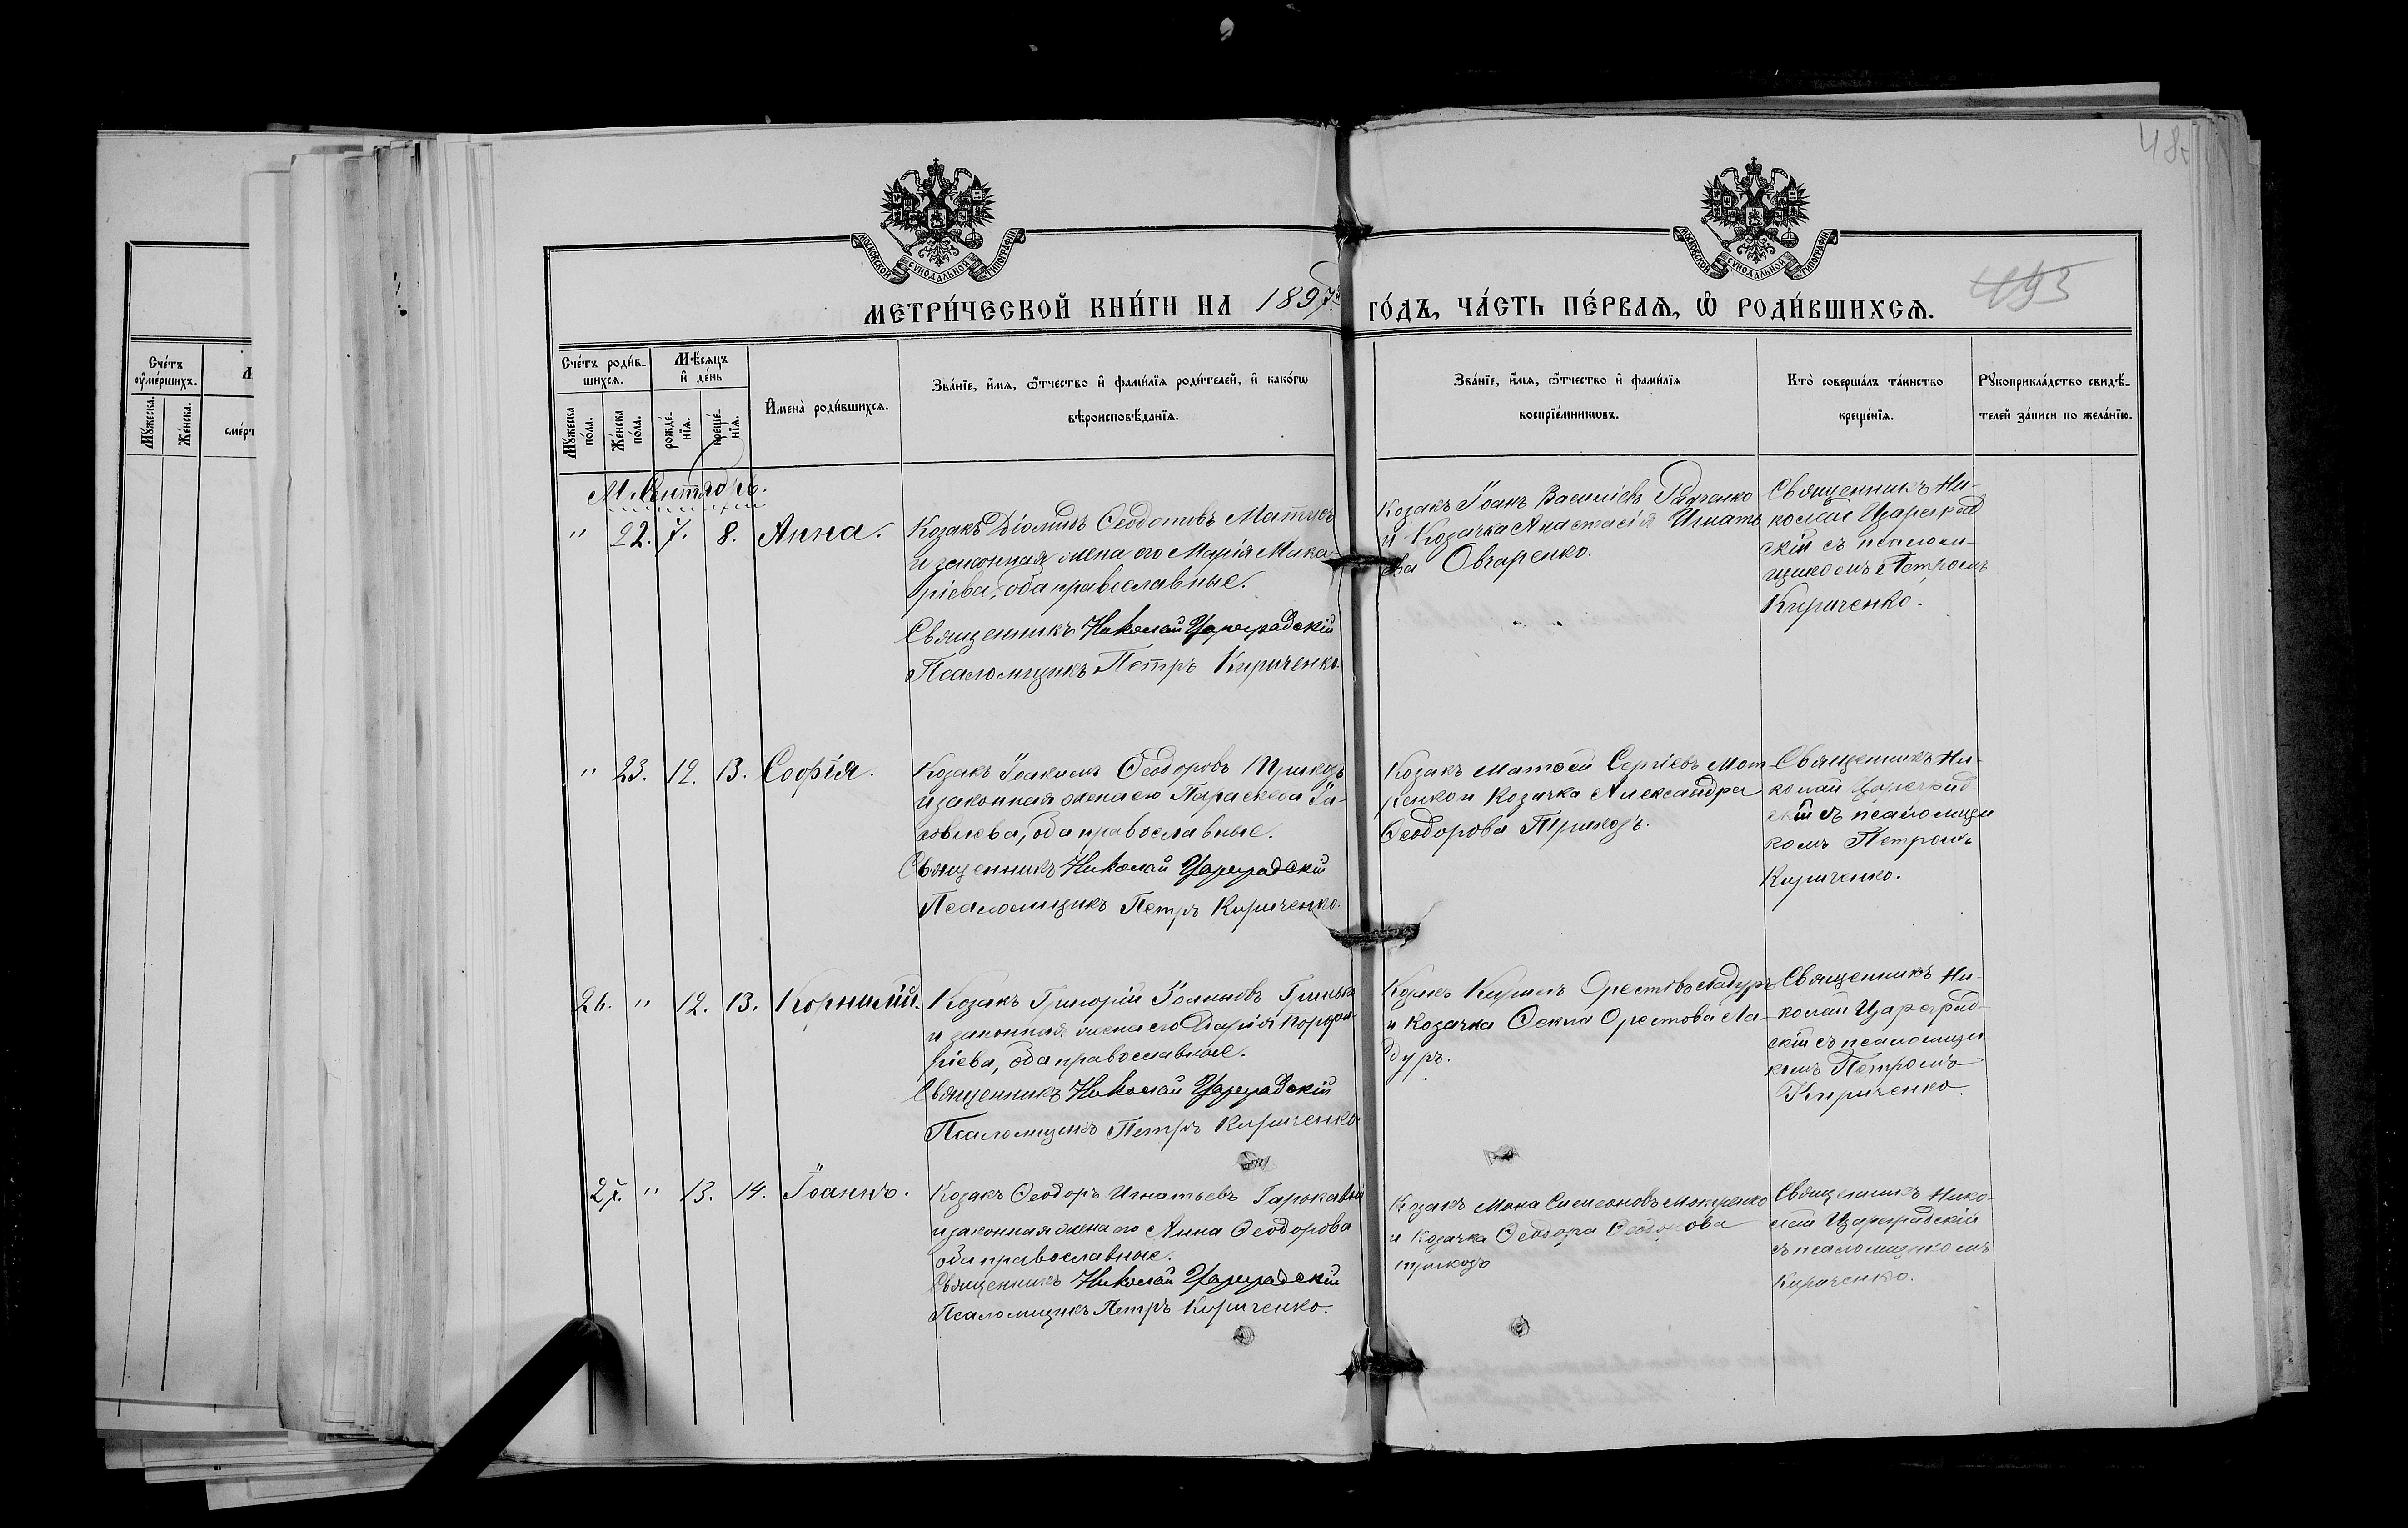 МОСКОВСКОЙ СѴНОДАЛЬНОЙ ТИПОГРАФІИ
МОСКОВСКОЙ СѴНОДАЛЬНОЙ ТИПОГРАФІИ
493
МЕТРИ́ЧЕСКОЙ КНИ́ГИ НА 1897й ГО́ДЪ, ЧА́СТЬ ПЕ́РВАѦ, Ѡ҆ РОДИ́ВШИХСѦ.
Сче́тъ ᲂу҆ме́ршихъ.
Мꙋ́жеска.
Же́нска.
Сче́тъ роди́в-
шихсѧ.
Мꙋ́жеска по́ла.
Же́нска по́ла.
Мѣ́сѧцъ
и҆ де́нь
рожде́-
нїѧ.
креще́-
нїѧ.
И҆мена̀ роди́вшихсѧ.
Зва́нїе, и҆́мѧ, ѻ҆́тчество и҆ фамі́лїѧ роди́телей, и҆ како́гѡ
вѣроисповѣ́данїѧ.
Зва́нїе, и҆́мѧ, ѻ҆́тчество и҆ фамі́лїѧ
воспрїе́мникѡвъ.
Кто̀ соверша́лъ та́инство
креще́нїѧ.
Рꙋкоприкла́дство свидѣ́-
телей за́писи по жела́нїю.
М. Сентябрь.
" 22. 7. 8. Анна.
Козакъ Діомидъ Ѳеодотовъ
и законная жена его Марія Мака-
ріева, оба православные.
Священникъ Николай Цареградскій
Псаломщикъ Петръ Кириченко.
Козакъ Іоанъ Василіевъ Радченко
и Козачка Анастасія Игнать
ева Овчаренко.
Священникъ Ни-
колай Цареград
скій съ псалом-
щикомъ Петромъ
Кириченко.
" 23. 12. 13. Софія.
Козакъ Іоакимъ Ѳеодоровъ Прикозъ
и законная жена его Параскева Іа-
ковлева, оба православные.
Священникъ Николай Цареградскій
Псаломщикъ Петръ Кириченко.
Козакъ Матѳей Сергіевъ Мот-
ренко и Козачка Александра
Ѳеодорова Прикозъ.
Священникъ Ни-
колай Цареград
скій съ псаломщи
комъ Петромъ
Кириченко.
26. " 12. 13. Корнилій.
Козакъ Григорій Іоанновъ
и законная жена его Дарія Порфи-
ріева, оба православные.
Священникъ Николай Цареградскій
Псаломщикъ Петръ Кириченко.
Козакъ Кирилъ Орестовъ Ладуръ
и Козачка Ѳекла Орестова Ла-
дуръ.
Священникъ Ни-
колай Цареград-
скій съ псаломщи
комъ Петромъ
Кириченко.
27. " 13. 14. Іоаннъ.
Козакъ Ѳеодоръ Игнатьевъ
и законная жена его Анна Ѳеодорова
оба православные.
Священникъ Николай Цареградскій
Псаломщикъ Петръ Кириченко.
Козакъ Мина Симеоновъ Мотренко
и Козачка Ѳеодора
прикозъ
Священникъ Нико-
лай Цареградскій
съ псаломщикомъ
Кириченко.